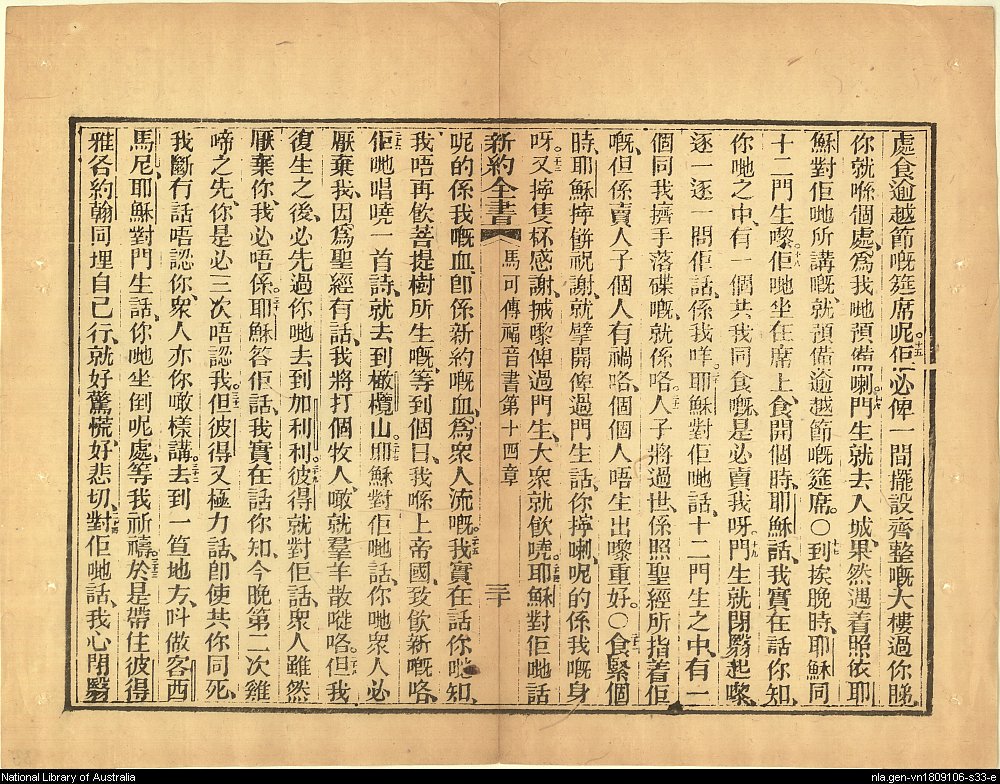 處食逾越節嘅筵席呢、十五佢必俾一間擺設齊整嘅大樓過你睇、
你就喺個處、爲我哋預備喇、十六門生就去人城、果然遇着照依耶
穌對佢哋所講嘅、就預備逾越節嘅筵席。〇十七到挨晚時、耶穌同
十二門生嚟。十八佢哋坐在席上、食開個時、耶穌話、我實在話你知、
你哋之中、有一個共我同食嘅、是必賣我呀、十九門生就閉翳起嚟、
逐一逐一問佢話、係我咩。二十耶穌對佢哋話、十二門生之中、有一
個同我擠手落碟嘅、就係咯。二十一人子將過世、係照聖經所指着佢
嘅、但係賣人子個人有禍咯、個個人唔生出嚟重好。〇二十二食緊個
時、耶穌擰餅祝謝、就擘開俾過門生話、你擰喇、呢的係我嘅身
呀。二十三又擰隻杯感謝、搣嚟俾過門生、大衆就飲嘵。二十四耶穌對佢哋話
新約全書 馬可傳福音書第十四章 三十
呢的係我嘅血、卽係新約嘅血、爲衆人流嘅。二十五我實在話你哋知、
我唔再飲菩提樹所生嘅、等到個日、我喺上帝國、致飲新嘅咯、
二十六佢哋唱嘵一首詩、就去到橄欖山。二十七耶穌對佢哋話、你哋衆人必
厭棄我、因爲聖經有話、我將打個牧人、噉就羣羊散嘥咯。二十八但我
復生之後、必先過你哋去到加利利、二十九彼得就對佢話、衆人雖然
厭棄你、我必唔係。三十耶穌答佢話、我實在話你知、今晚第二次雞
啼之先、你是必三次唔認我。三十一但彼得又極力話、卽使共你同死、
我斷冇話唔認你、衆人亦你噉樣講。三十二去到一笪地方、呌做客西
馬尼、耶穌對門生話、你哋坐倒呢處、等我祈禱。三十三於是帶住彼得
雅各約翰同埋自己行、就好驚慌、好悲切、三十四對佢哋話、我心閉翳
National Library of Australia
nla.gen-vn1809106-s33-e